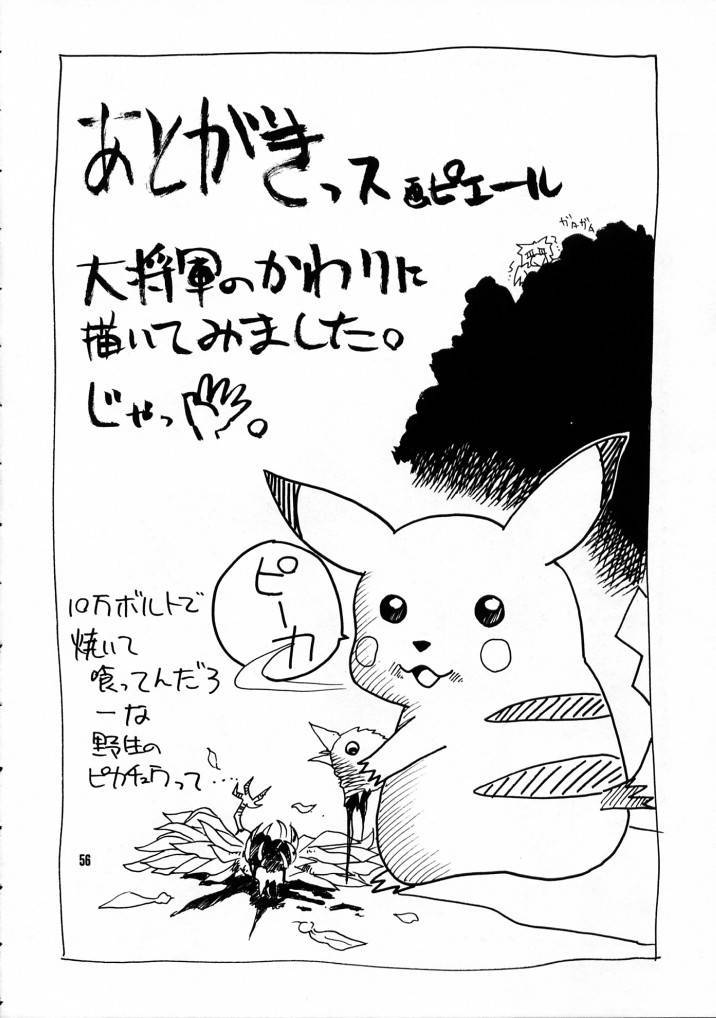 あとがきっス 画ピエール
大将軍のかわりに
描いてみました。
じゃっ 。
ガタガタ
ピーカ
10万ボルトで
焼いて
喰ってんだろ
ーな
野生の
ピカチュウって…
56